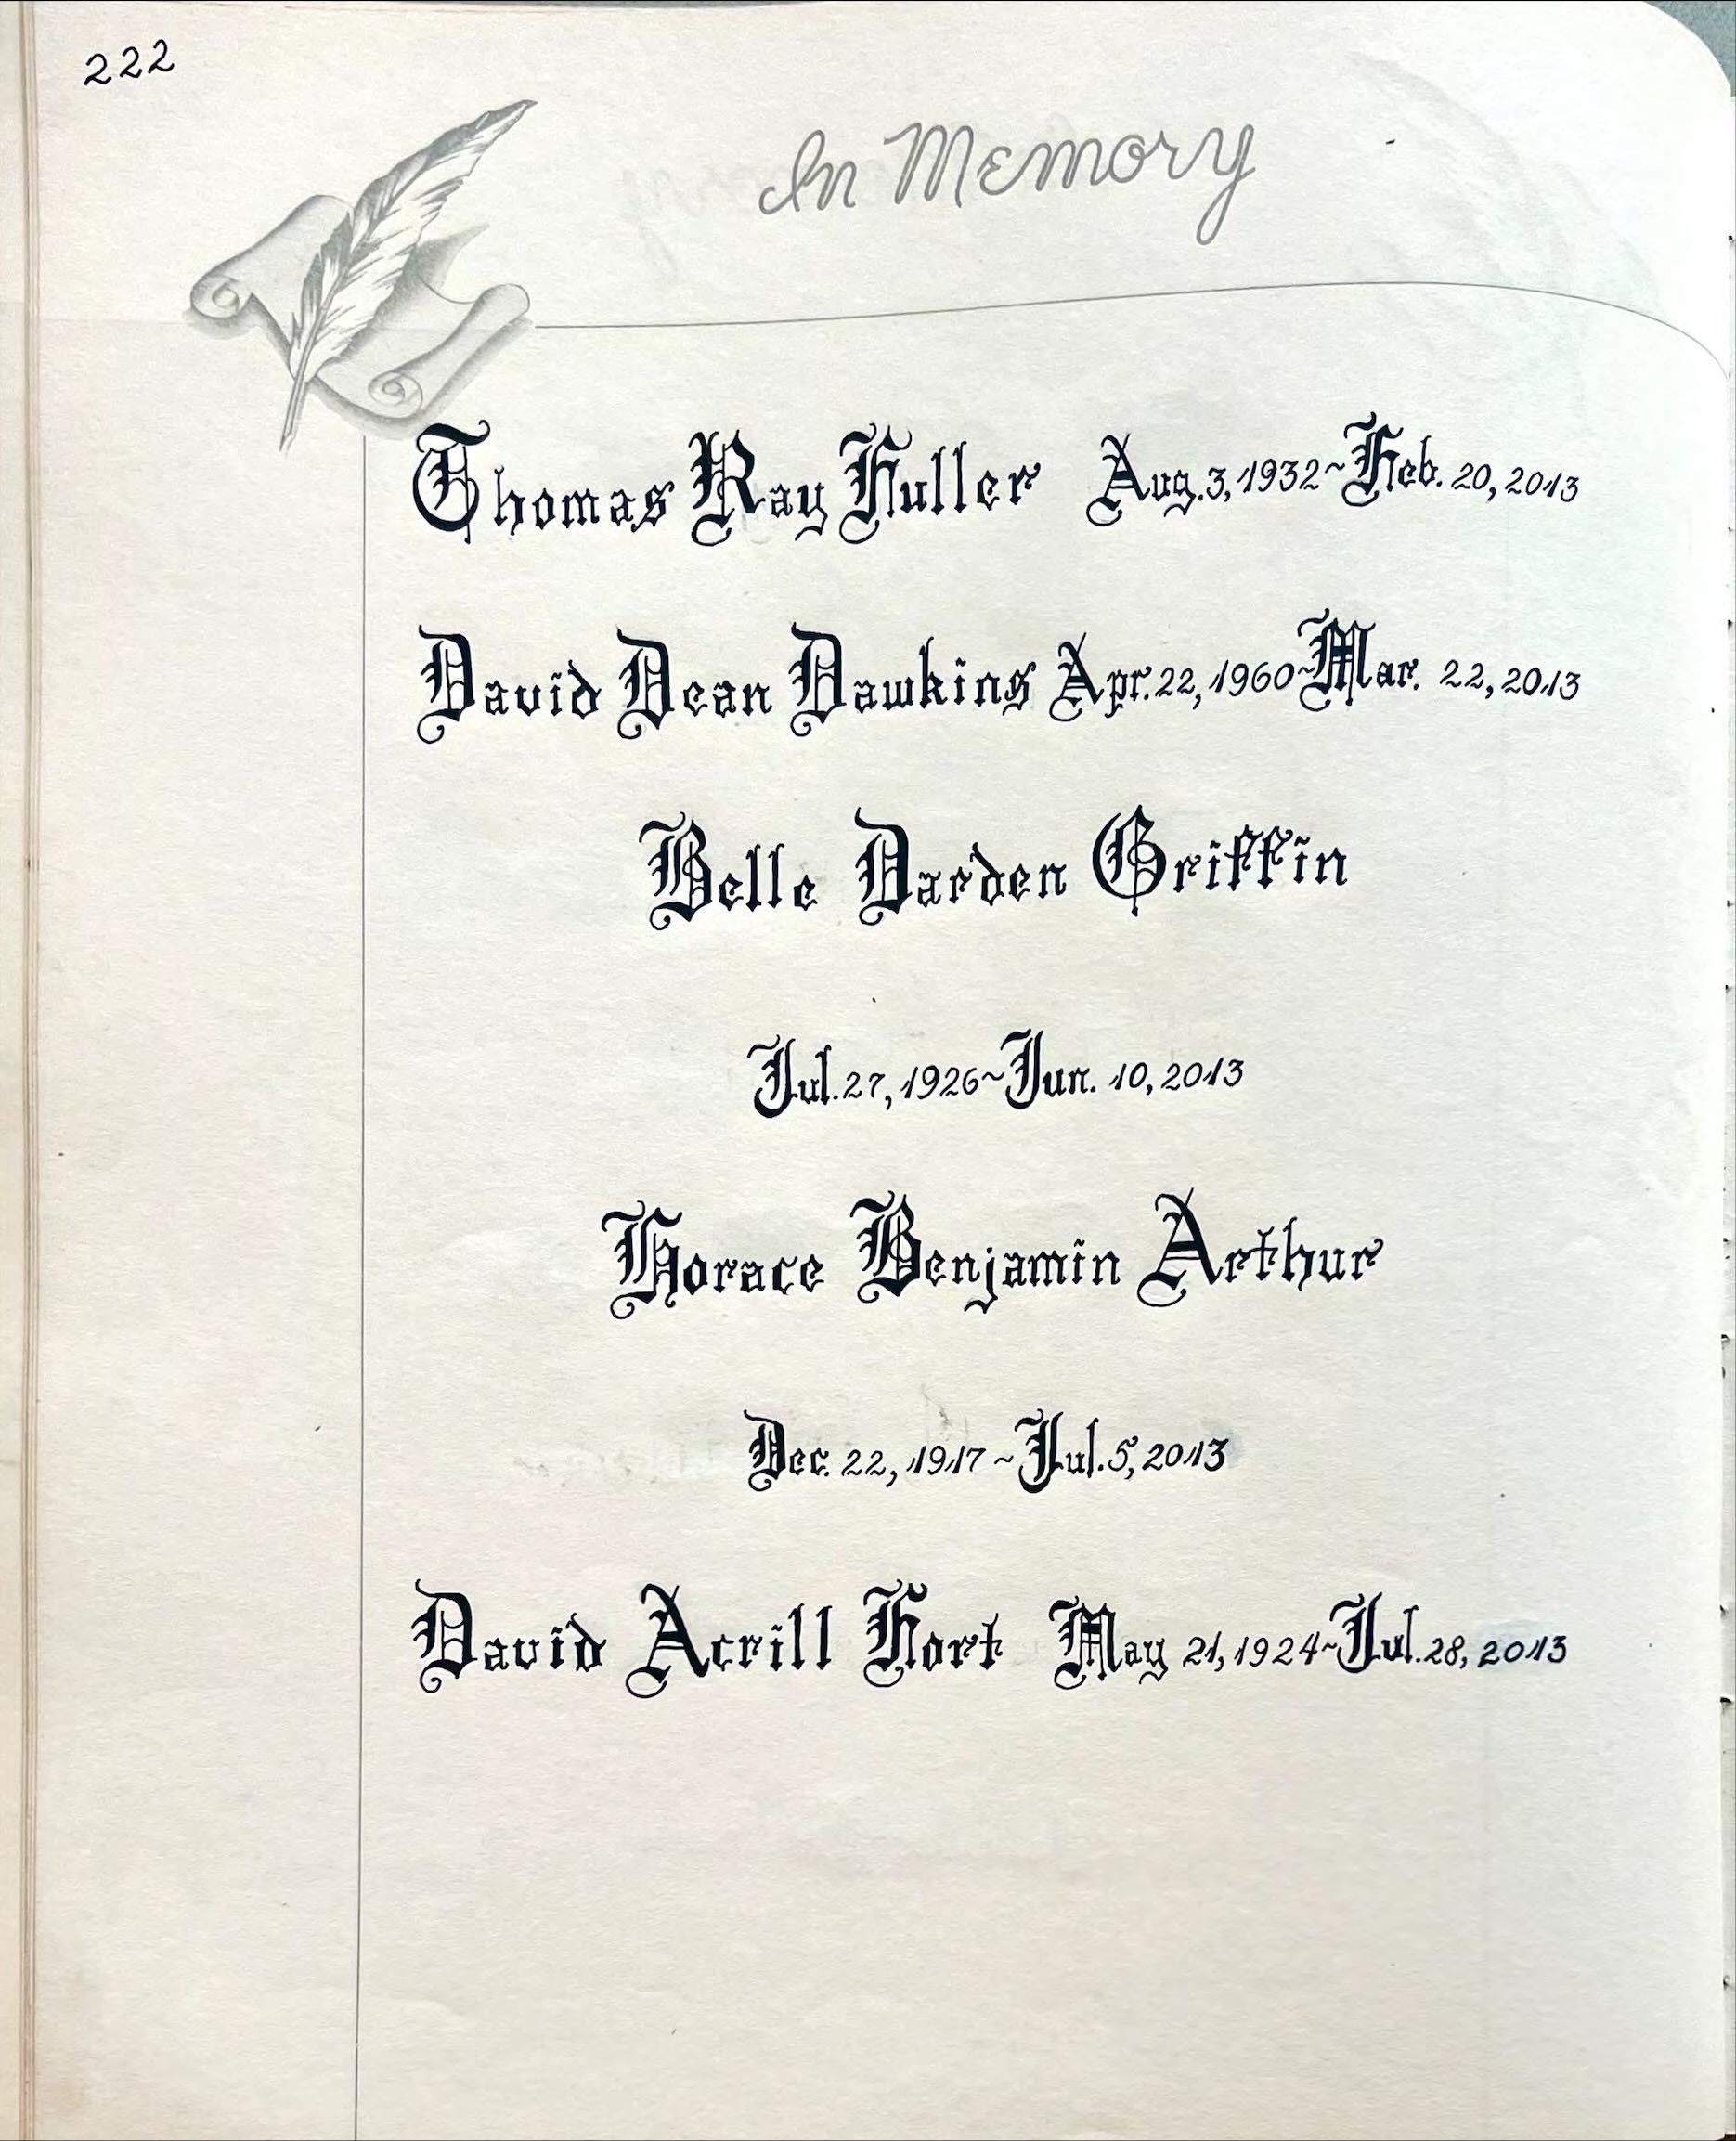 222
In Memory
Thomas Ray Fuller Aug. 3, 1932~Feb. 20, 2013
David Dean Dawkins Apr. 22, 1960~Mar. 22, 2013
Belle Darden Griffin
Jul. 27, 1926~Jun. 10, 2013
Horace Benjamin Arthur
Dec. 22, 1917~Jul. 5, 2013
David Acrill Fort May 21, 1924~Jul. 28, 2013